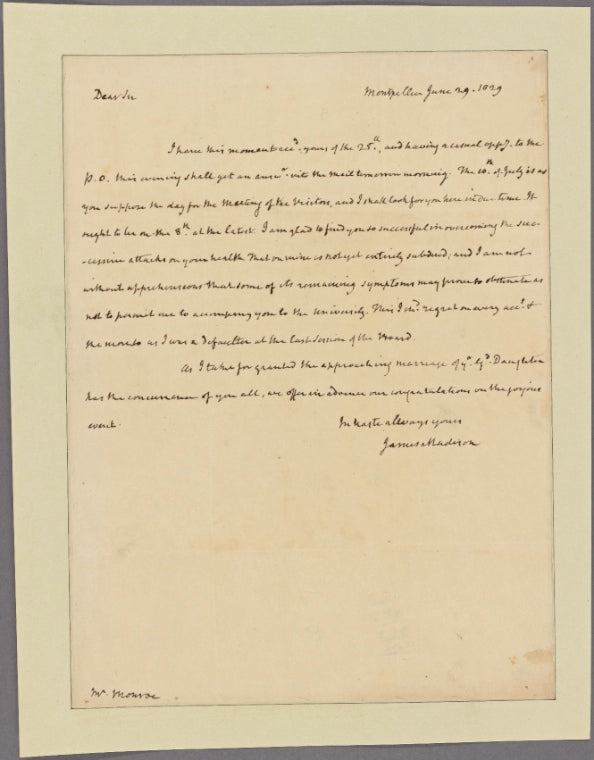 Dear Sir
Montpellier June 29. 1829
I have this moment recd. yours of the 25th, and having a casual oppy. to the
P. O. this evening shall get an answr. into the mail tomorrow morning. The 10th of July is as
you suppose the day for the Meeting of the Visitors, and I shall look for you here in due time. It
ought to be on the 8th at the latest. I am glad to find you so successful in overcoming the suc-
-cessive attacks on your health. That on mine is not yet entirely subdued, and I am not
without apprehensions that some of its remaining symptoms may prove so obstinate as
not to permit me to accompany you to the University. This I shd. regret on every acct. &
the more so as I was a defaulter at the last session of the Board.
As I take for granted the approaching marriage of yr. Gd. Daughter
has the concurrence of you all, we offer in advance our congratulations on the joyous
event.
In haste always yours
James Madison
Mr. Monroe